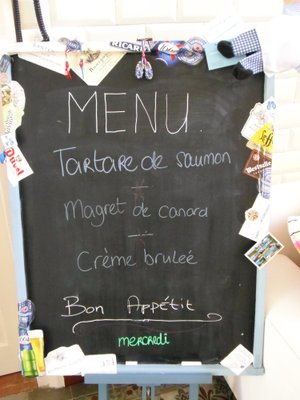 RICARD
MENU.
Tartare de saumon
Magret de canard
Crème bruleé
Bon Appétit
mercredi